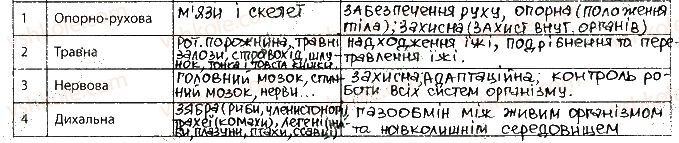 1 Опорно-рухова м'язи і скелет забезпечення руху, опорна (положення
тіла); захисна (захист внут. органів)
2 Травна Рот. порожнина, травні надходження їжі, подрібнення та пере-
залози, стравохід, шлу- травлення їжі.
нок, тонка і товста кишки
3 Нервова головний мозок, спин- захисна, адаптаційна, контроль ро-
ний мозок, нерви... боти всіх систем організму.
4 Дихальна зябра (риби, членистоногі) газообмін між живим організмом
трахеї (комахи), легені та навколишнім середовищем
плазуни, птахи, ссавці)